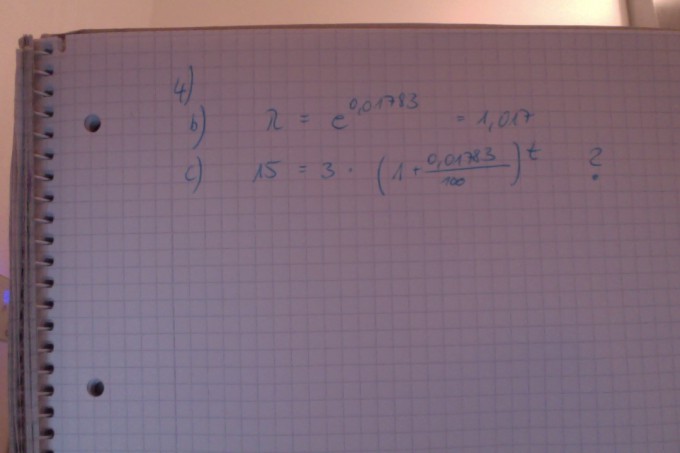 4)
b) λ = e^0,01783 = 1,017
c) 15 = 3 · (1 + 0,01783/100)^t ?